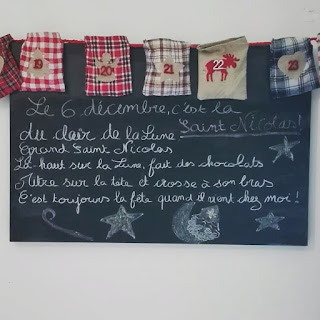 19
20
21
22
23
Le 6 décembre, c'est la
Saint Nicolas!
Au clair de la Lune
Grand Saint Nicolas
Là-haut sur la Lune, fait des chocolats
Mitre sur la tête et crosse à son bras
C'est toujours la fête quand il vient chez moi!